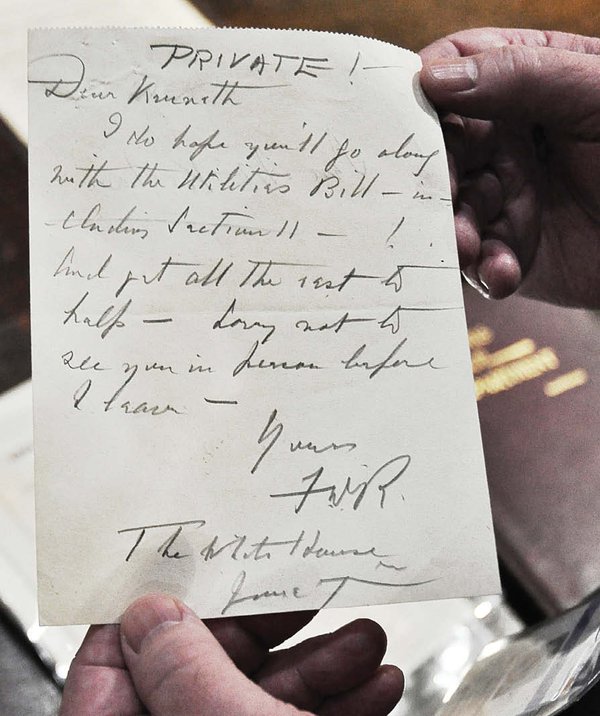 PRIVATE! —
Dear Kenneth
I do hope you'll go along
with the Utilities Bill — in-
cluding Section 11 — !
And get all the rest to
help — Sorry not to
see you in person before
I leave —
Yours
FDR.
The White House
June